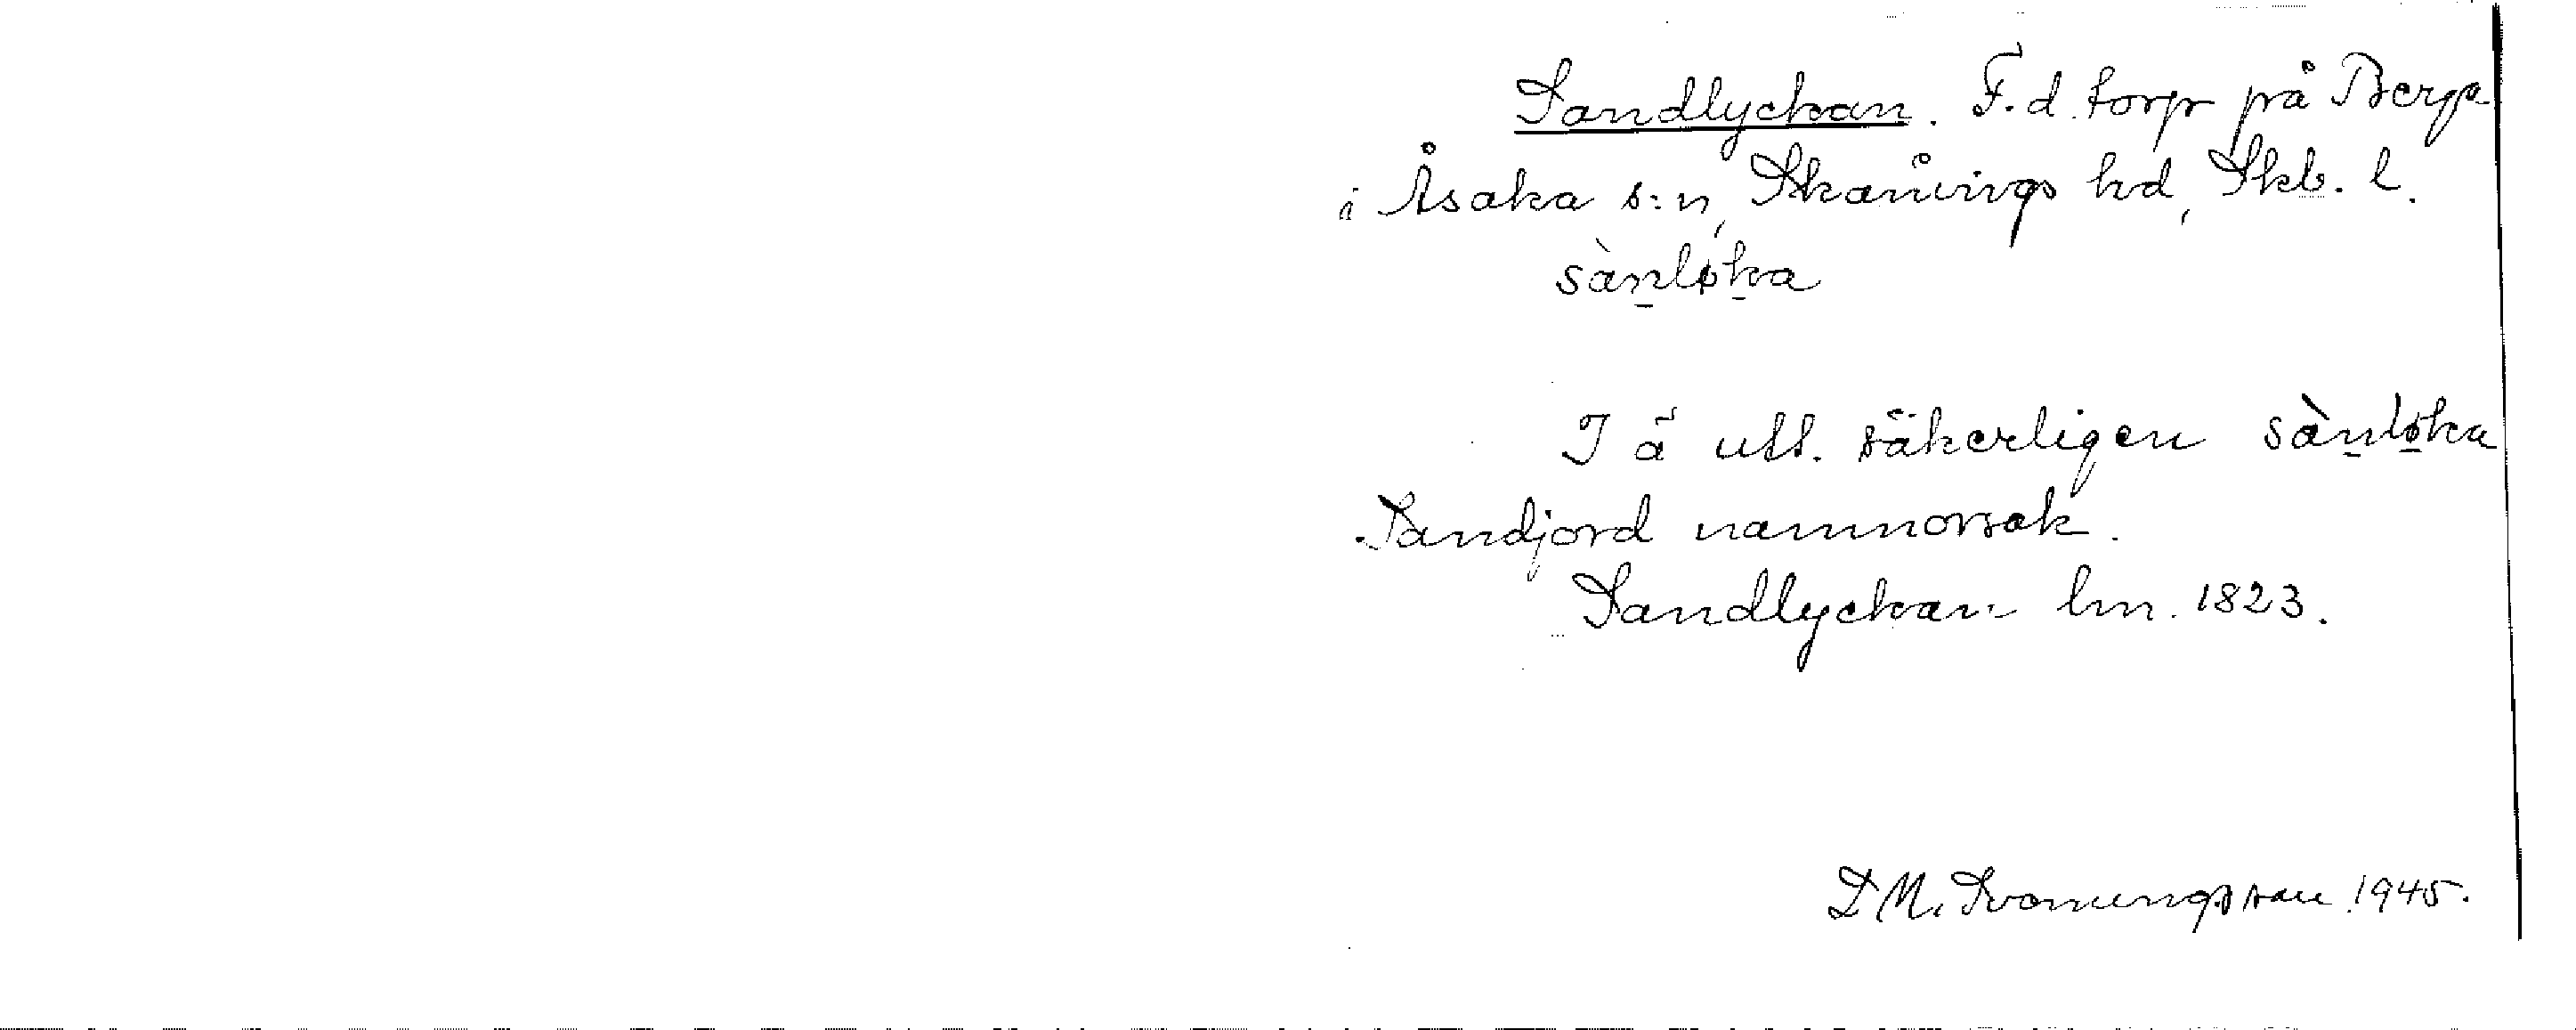 Sandlyckan. F.d. torp på Berga
i Åsaka s:n, Skånings hd, Skb. l.
sànløka
I ä utt. säkerligen sànløka
Sandjord namnorsak.
Sandlyckan lm. 1823.
1945.